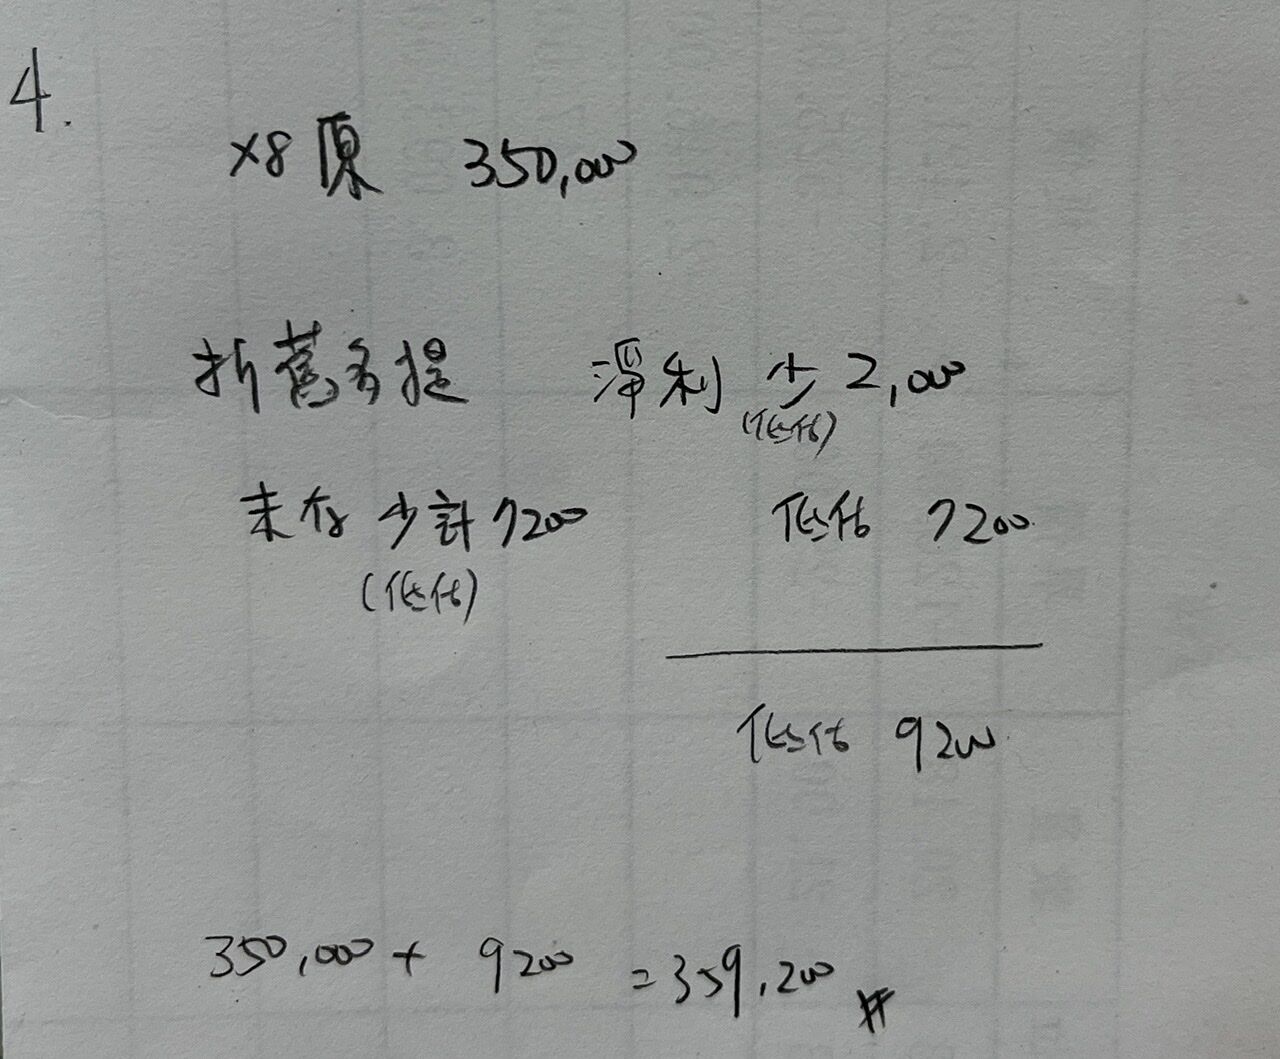 4.
X8原 350,000
折舊多提 淨利 少 2,000
(低估)
末存 少計 7200 低估 7200
(低估)
低估 9200
350,000 + 9200 = 359,200 #